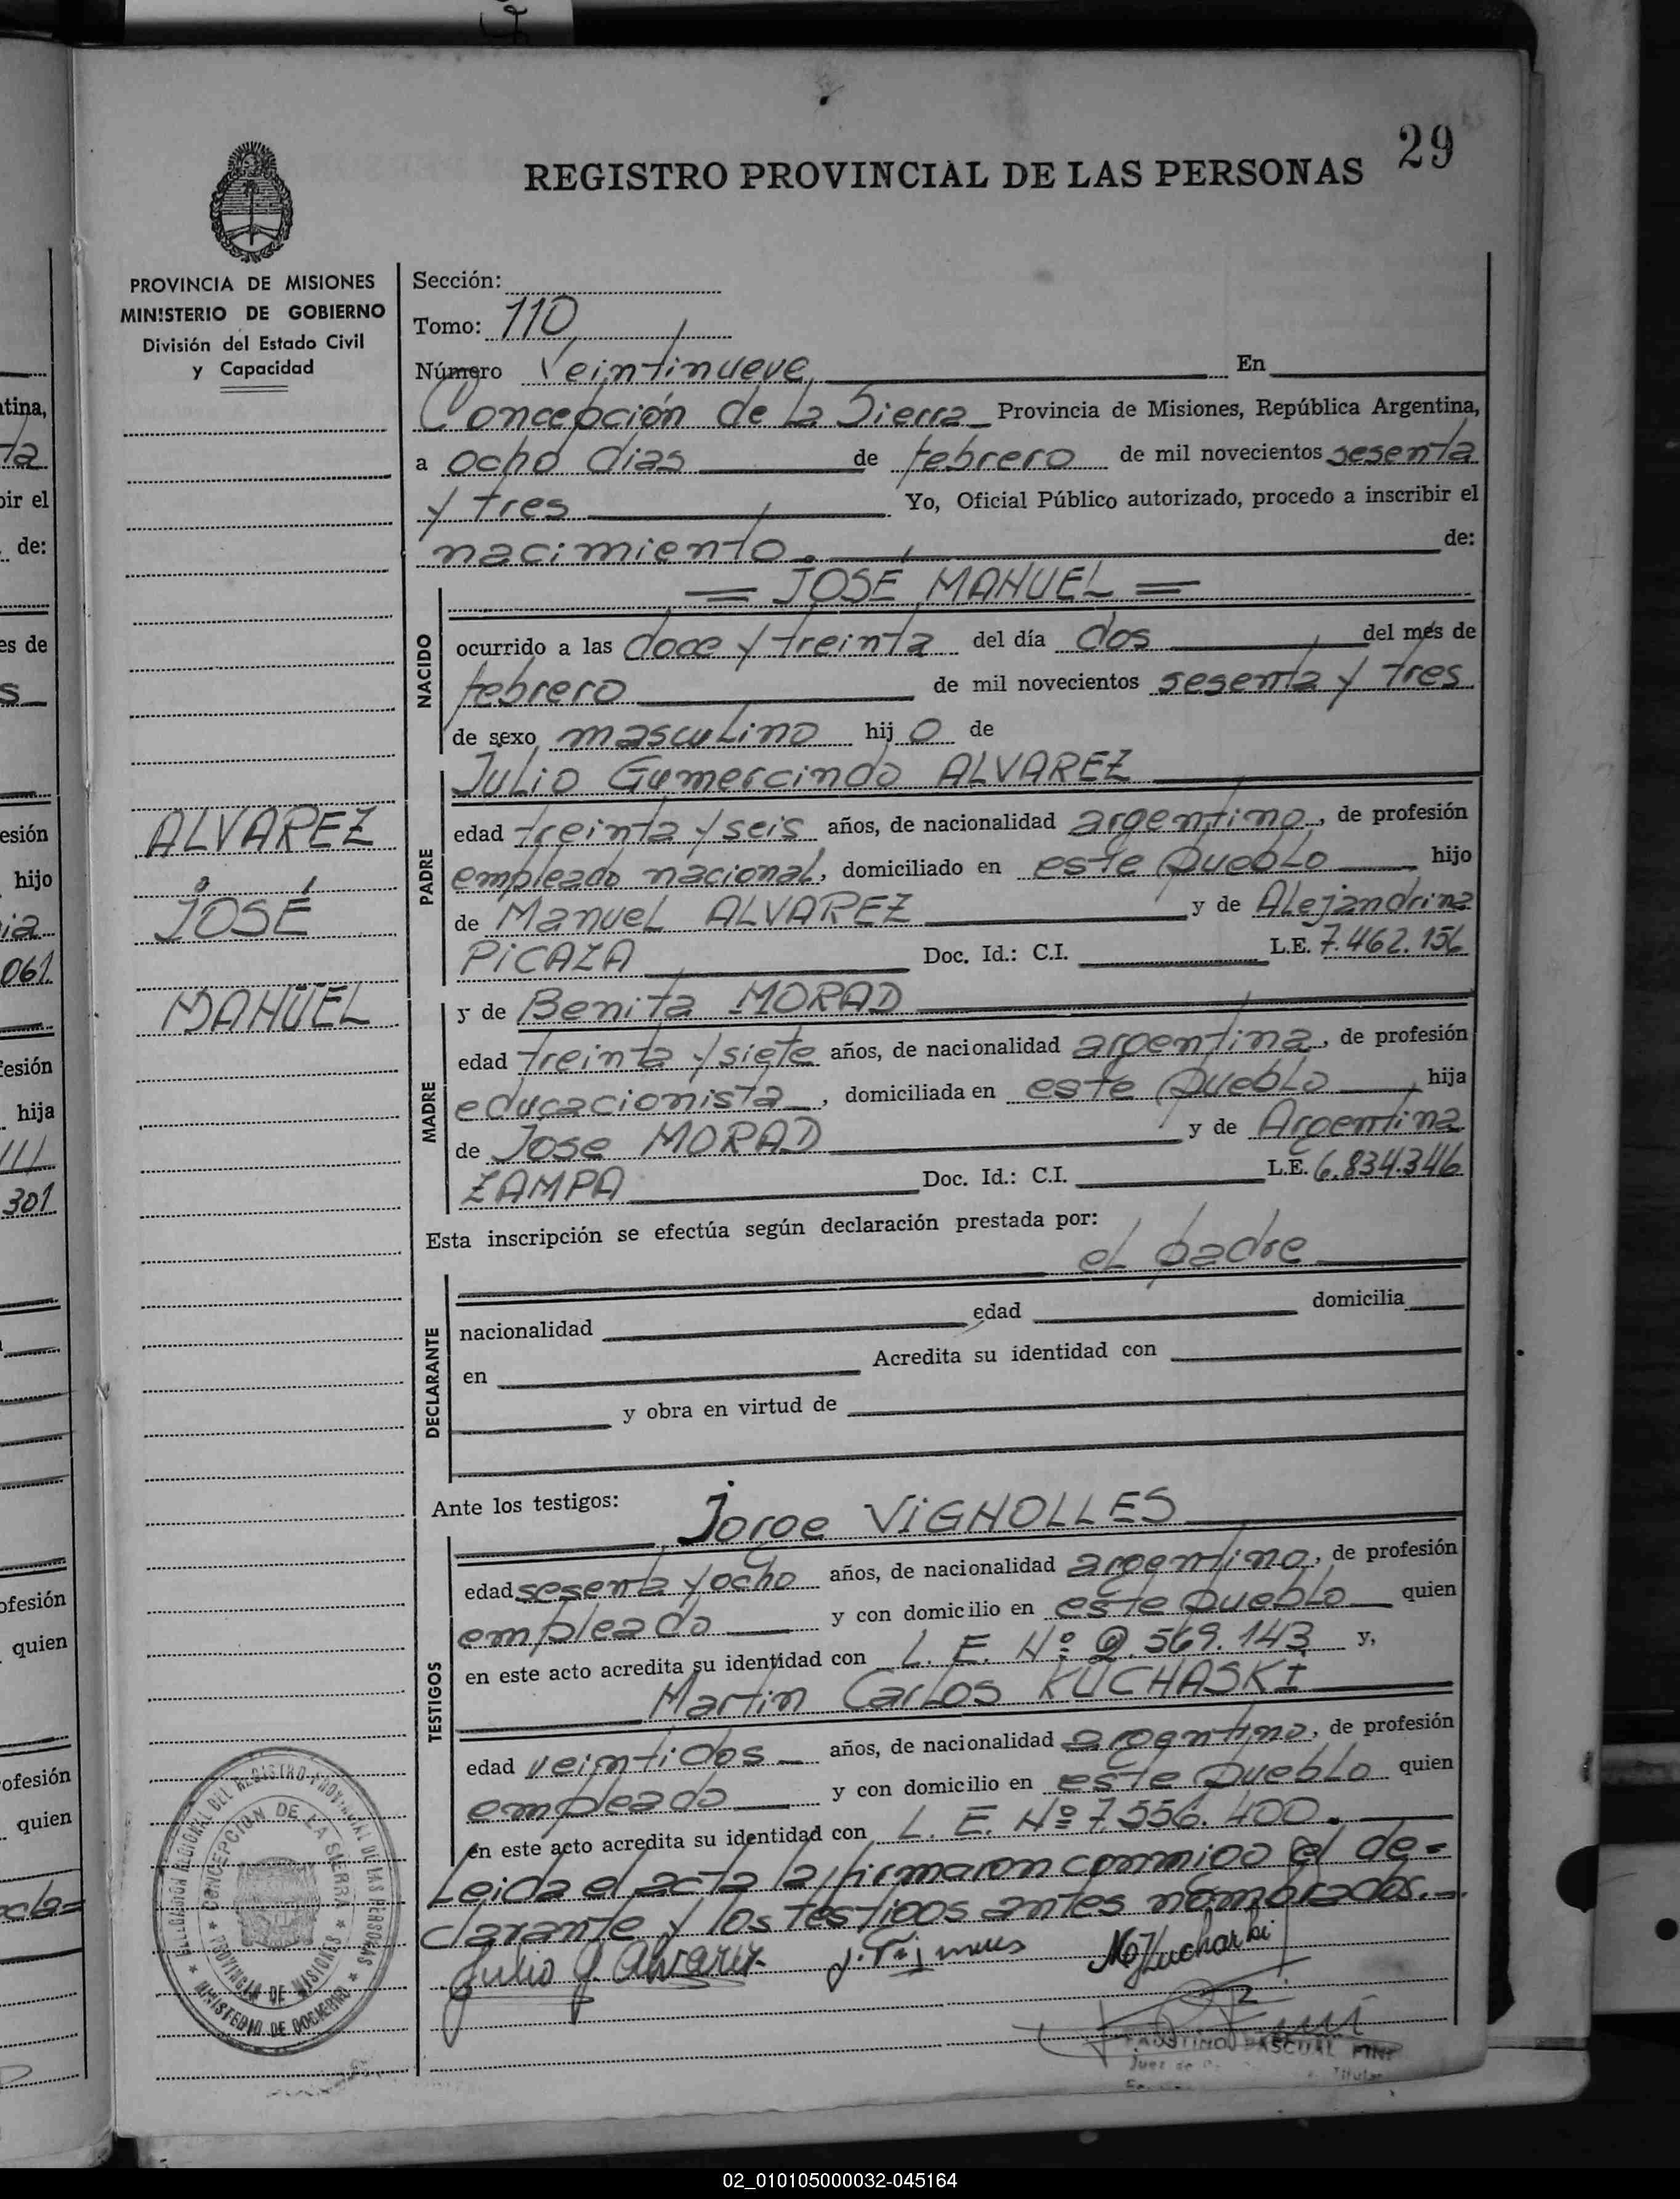 29
REGISTRO PROVINCIAL DE LAS PERSONAS
PROVINCIA DE MISIONES
MINISTERIO DE GOBIERNO
División del Estado Civil
y Capacidad
ALVAREZ
JOSÉ
MANUEL
Sección:
Tomo: 110
Número Veintinueve En
Concepción de la Sierra Provincia de Misiones, República Argentina,
a ocho dias de febrero de mil novecientos sesenta
y tres Yo, Oficial Público autorizado, procedo a inscribir el
nacimiento. de:
= JOSÉ MANUEL =
NACIDO
ocurrido a las doce y treinta del día dos del més de
febrero de mil novecientos sesenta y tres
de sexo masculino hij o de
Julio Gumercindo ALVAREZ
PADRE
edad treinta y seis años, de nacionalidad argentino, de profesión
empleado nacional, domiciliado en este pueblo hijo
de Manuel ALVAREZ y de Alejandrina
PICAZA Doc. Id.: C.I. L.E. 7.462.156
y de Benita MORAD
MADRE
edad treinta y siete años, de nacionalidad argentina, de profesión
educacionista, domiciliada en este pueblo hija
de Jose MORAD y de Argentina
ZAMPA Doc. Id.: C.I. L.E. 6.834.346
Esta inscripción se efectúa según declaración prestada por:
el padre
DECLARANTE
nacionalidad edad domicilia
en Acredita su identidad con
y obra en virtud de
Ante los testigos:
Jorge VIGNOLLES
TESTIGOS
edad sesenta y ocho años, de nacionalidad argentino, de profesión
empleado y con domicilio en este pueblo quien
en este acto acredita su identidad con L. E. Nº 2.569.143 y,
Martin Carlos KUCHASKI
edad veintidos años, de nacionalidad argentino, de profesión
empleado y con domicilio en este pueblo quien
en este acto acredita su identidad con L. E. Nº 7.556.400.
Leida el acta la firmaron conmigo el de=
clarante y los testigos antes nombrados.
Julio G. Alvarez
DELEGACION REGIONAL DEL REGISTRO PROVINCIAL DE LAS PERSONAS
MINISTERIO DE GOBIERNO
CONCEPCION DE LA SIERRA
PROVINCIA DE MISIONES
FAUSTINO PASCUAL
Titular
tina,
ta
bir el
de:
es de
s
esión
hijo
ia
061
esión
hija
301
ofesión
quien
ofesión
quien
cla=
02_010105000032-045164